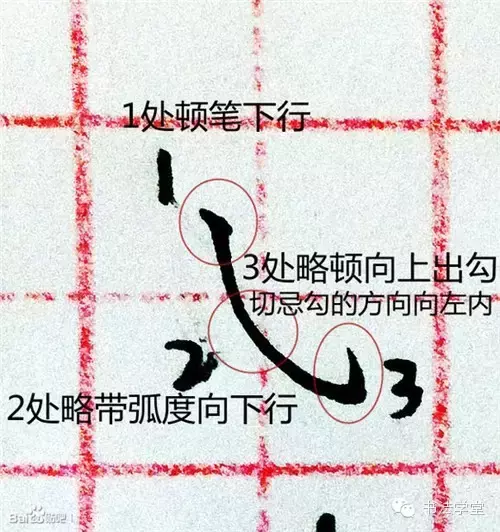 1处顿笔下行
1
3处略顿向上出勾
切忌勾的方向向左内
2
3
2处略带弧度向下行
Bai du 贴吧
书法学堂